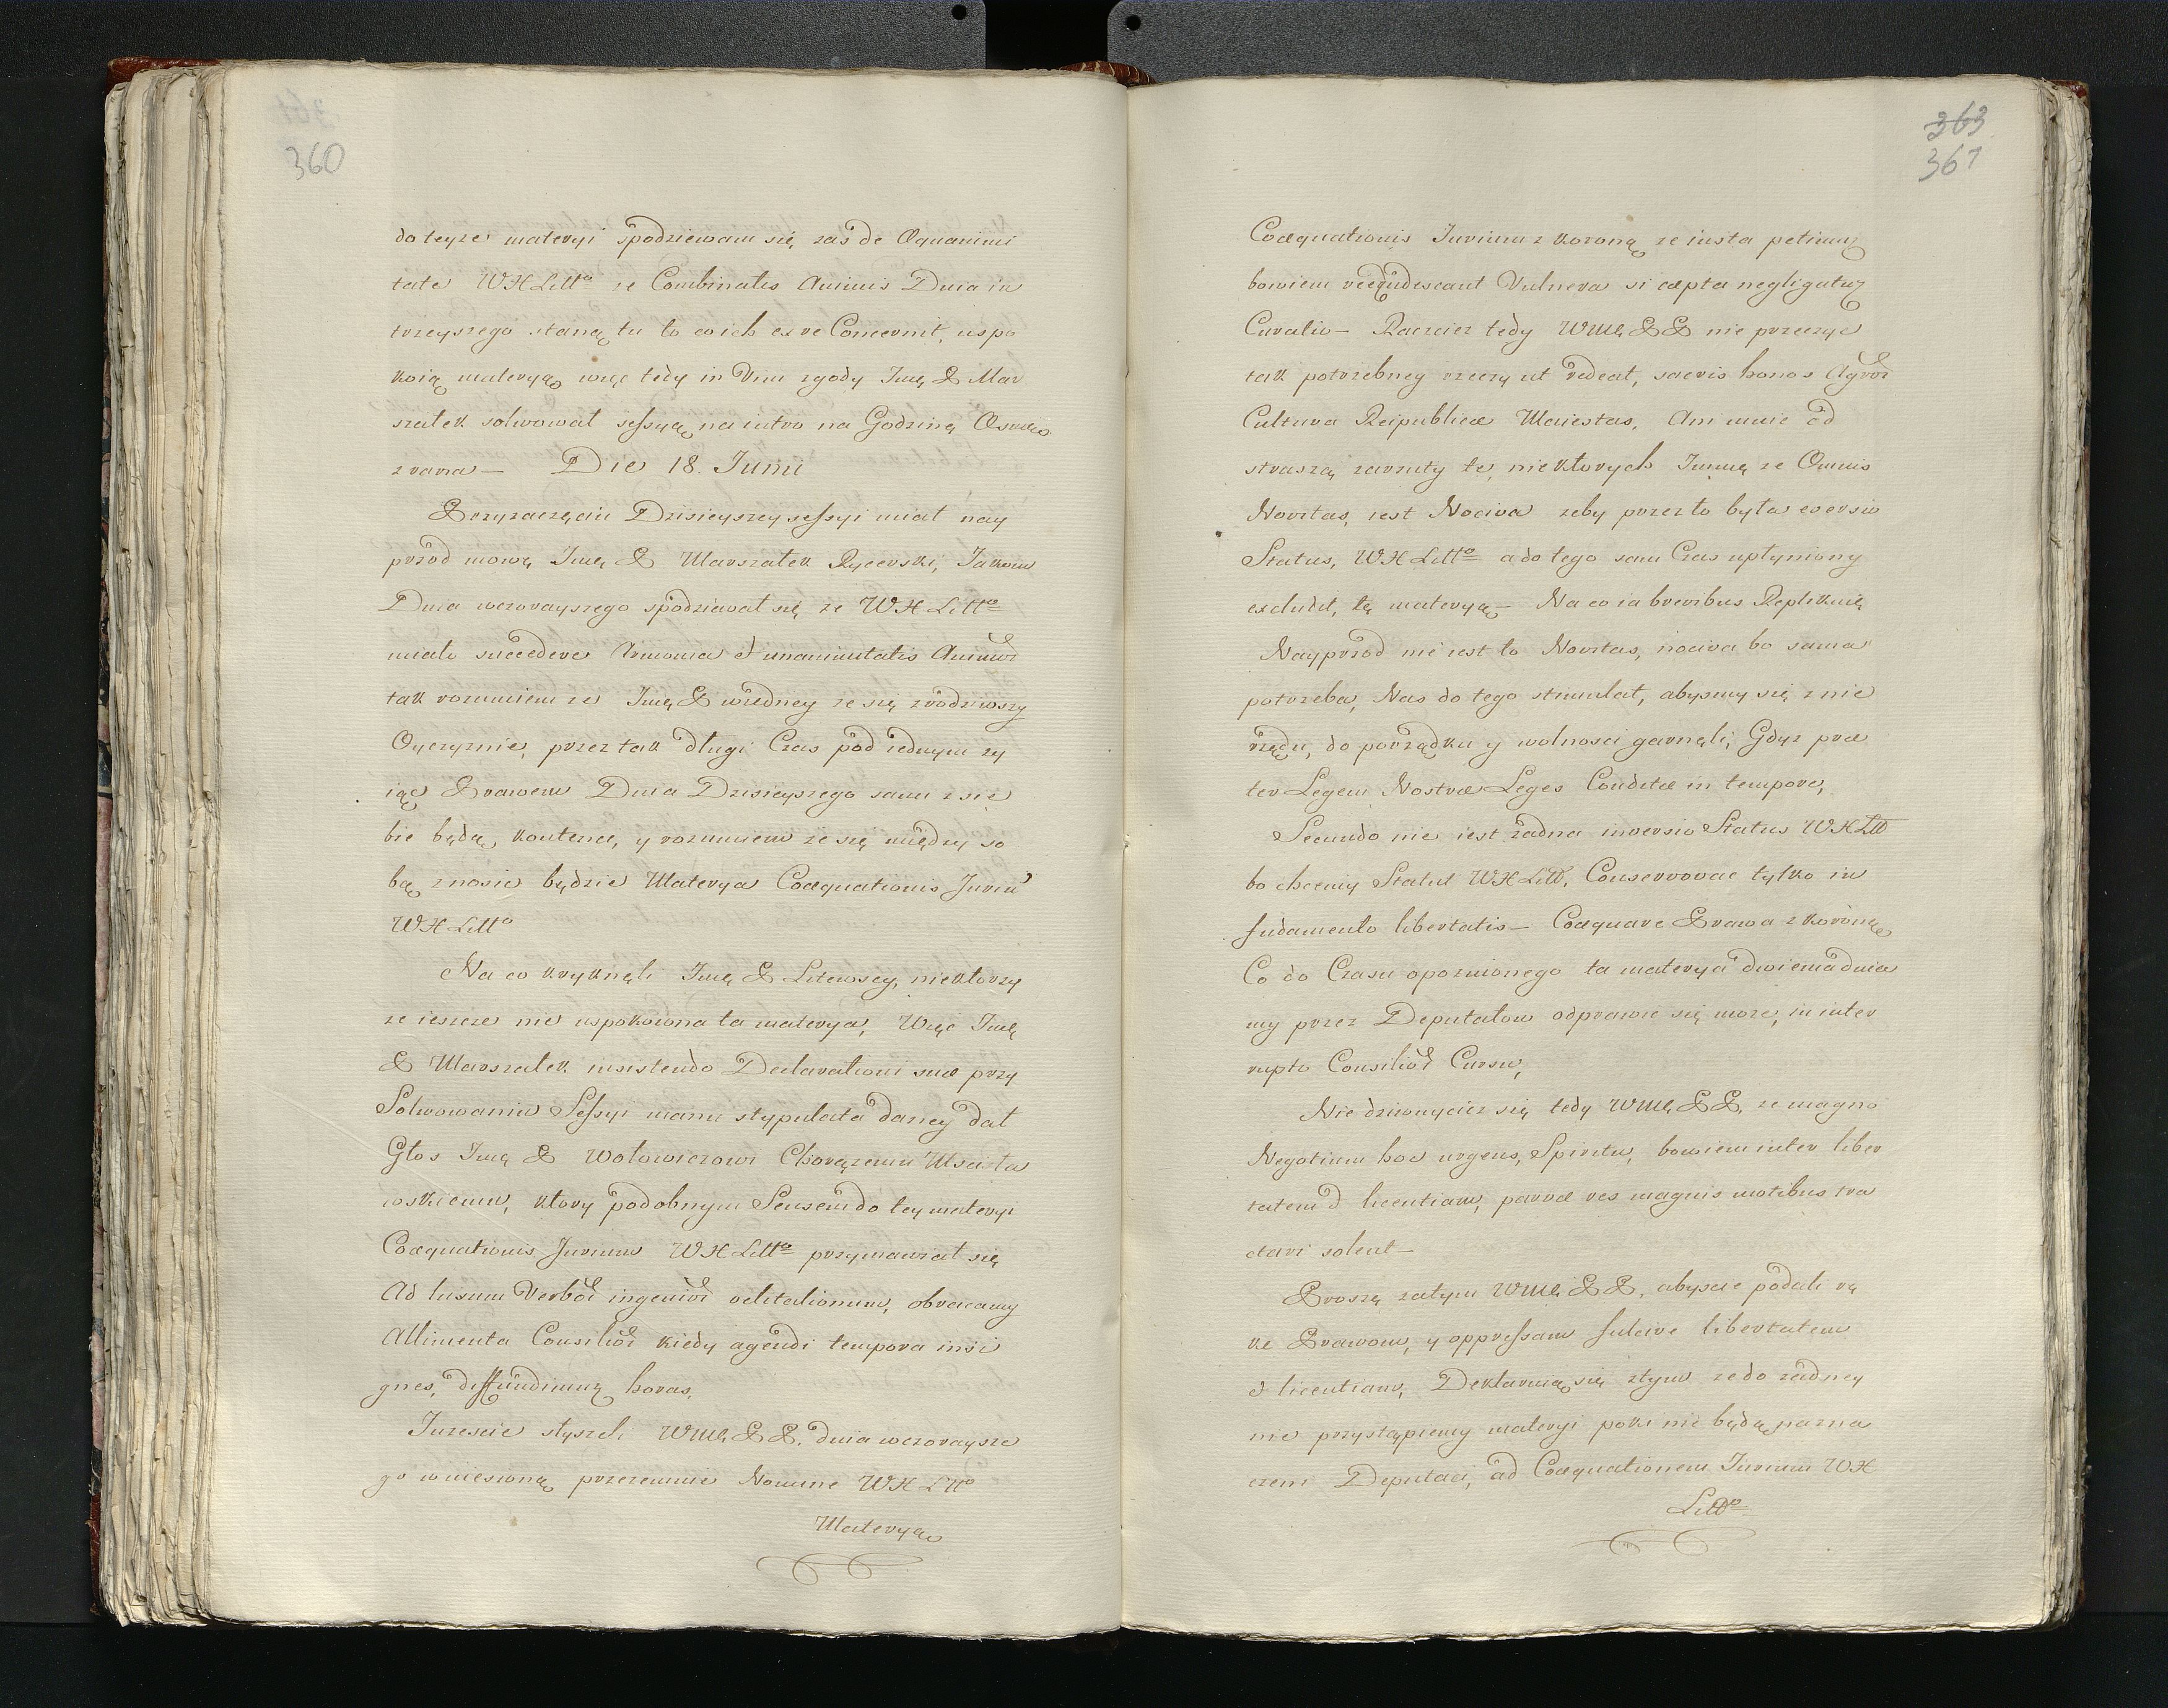 360
do teyze materyi spodziewam się zas de Œquanimi
tate WXLitto ze Combinatis Animis Dnia iu
trzeyszego staną tu to co ich ex re Concernit, uspo
koią materyą, więc tedy in Vim zgody Imę P Mar
szałek solwował sessyą na iutro na Godzinę Osmą
z rana — Die 18. Iunii
Przyzaczęciu Dzisieyszey sessyi miał nay
przod mowę Imę P Marszałek Rycerski, Jakom
Dnia wczorayszego spodziewał się ze WXLitto
miało succedere Armonia et unanimitatis Animor
tak rozumiem ze Imę P w iedney ze się zrodziwszy
Oyczyznie, przez tak długi Czas pod iednym zy
iąc Prawem Dnia Dzisieyszego sami z sie
bie będą, kontenci, y rozumiem ze się między so
bą znosic będzie Materya Coæquationis Juriu
WXLitto
Na co krzyknęli Imę P Litewscy, niektorzy
ze ieszcze nie uspokoiona ta materya, Więc Imę
P Marszałek insistendo Declarationi suæ przy
Solwowaniu Sessyi manu stypulata daney dał
Głos Imę P Wołowiczowi Chorązemu Mscisła
wskiemu, ktory podobnym Sensem do tey materyi
Coæquationis Jurium WXLitto przymawiał się
Ad lusum Verbor ingenior velitationum, obracamy
Allimenta Consilior kiedy agendi tempora insi
gnes, deffundimus horas.
Juzescie słyszeli WMę PP. dnia wczoraysze
go wniesioną przezemnie Nomine WXLitto
Materyą
363
361
Coæquationis Iurium z koroną ze iusta petimus
bowiem recrudescant Vulnera si cæpta negligatur
Curatio — Raczciez tedy WMę PP nie przeczyc
tak potrzebney rzeczy ut redeat, sacris honos Agror
Cultura Reipublicæ Maiestas, Ani mnie od
straszą zarzuty te, niektorych Immę ze Omnis
Novitas, iest Nociva zeby przez to była eversio
Status, WXLitto a do tego sam Czas upłyniony
excludit, tę materyą — Na co ia brevibus Replikuię
Nayprzod nie iest to Novitas, nociva bo sama
potrzeba, Nas do tego stimulat, abysmy się z nie
rządu, do porządku y wolnosci garnęli, Gdyz præ
ter Legem Nostræ Leges Conditæ in tempore,
Secundo nie iest zadna inversio Status WXLitt
bo chcemy Statut WXLitt. Conservovac tylko in
fudamento libertatis — Coæquare Prawa z koroną
Co do Czasu opoznionego ta materya dwiema dnia
my przez Deputatow odprawic się moze, in inter
rupto Consilior Cursu,
Nie dziwuyciez się tedy WMę PP. ze magno
Negotium hoc urgens, Spiritu, bowiem inter liber
tatem et licentiam, parvæ res magnis motibus tra
ctari solent —
Proszę zatym WMę PP. abyscie podali rę
kę Prawom, y oppressam fulcire libertatem
et licentiam, Deklaruią się z tym ze do zadney
nie przystąpiemy materyi poki nie będą nazna
czeni Deputaci, ad Coæquationem Iurium WX
Litto